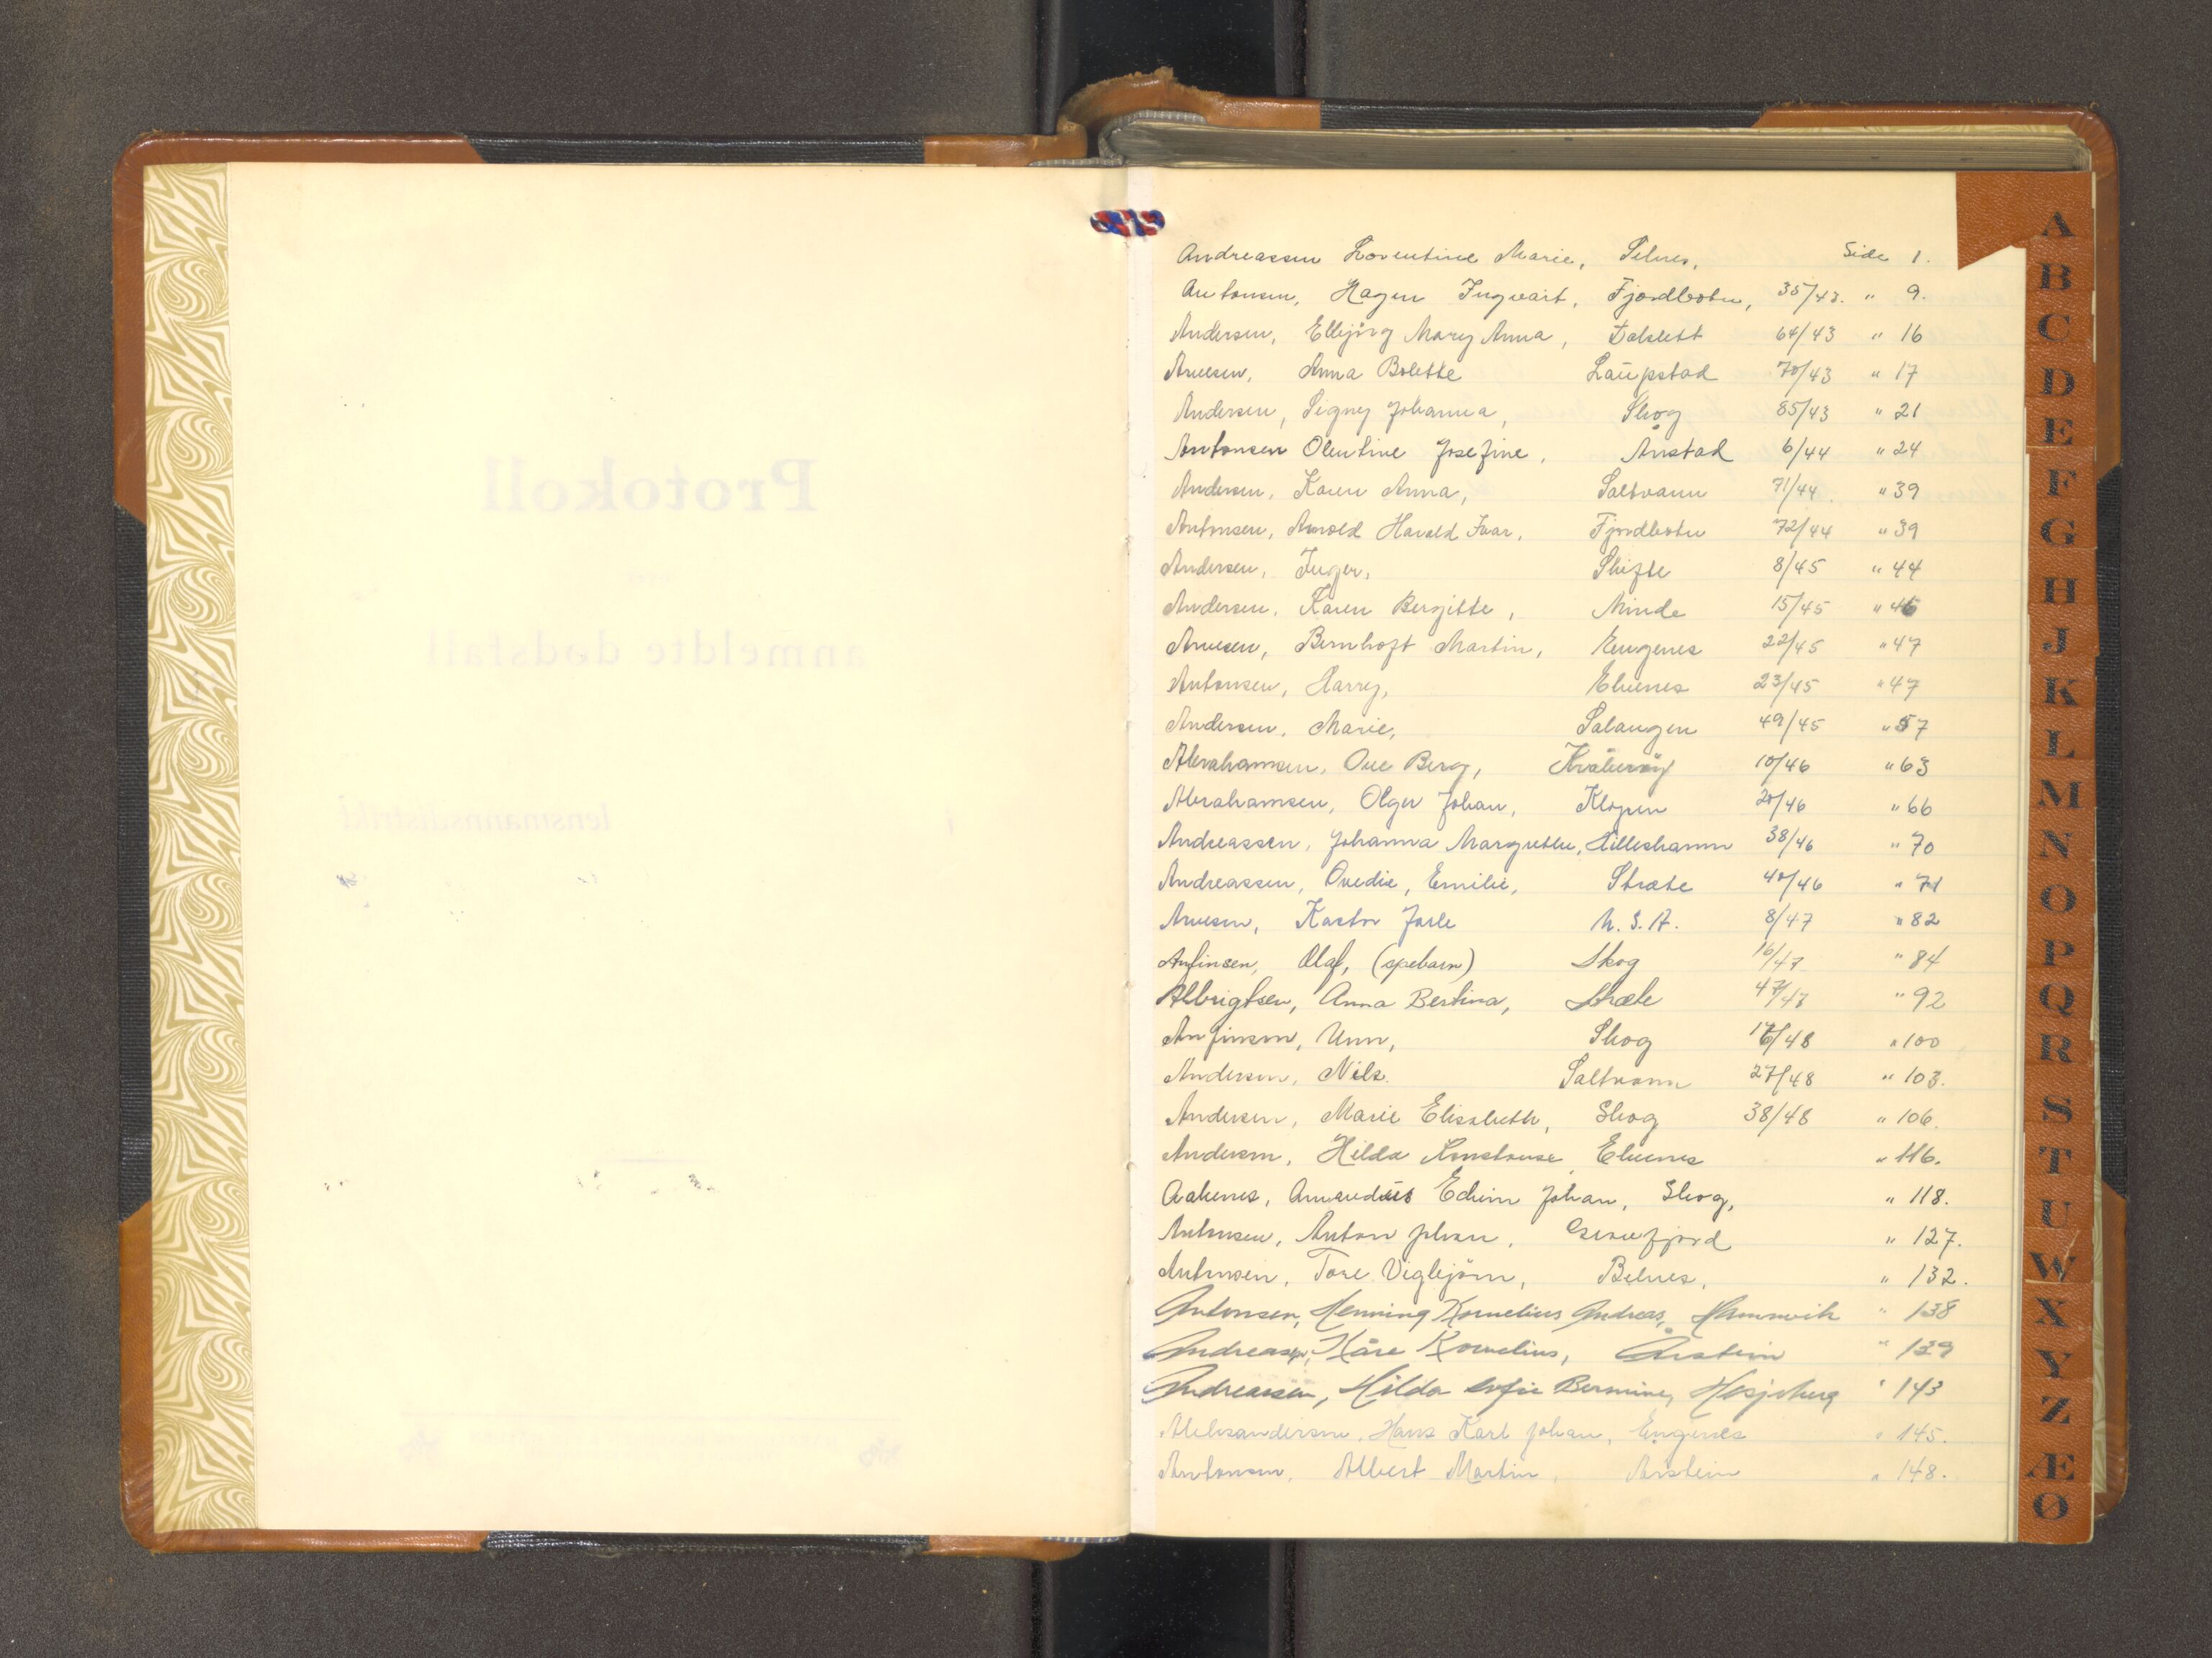 Protokoll
anmeldte dødsfall
lensmannsdistrikt
Andreassen Lorentine Marie, Selnes, Side 1.
Antonsen, Hagen Ingvart, Fjordbotn, 35/43. " 9.
Andersen, Ellbjørg Mary Anna, Dalslett 64/43 " 16
Arnesen, Anna Bolette Laupstad 70/43 " 17
Andersen, Signy Johanna, Skog 85/43 " 21
Antonsen Olentine Josefine, Årstad 6/44 " 24
Andersen, Karen Anna, Saltvann 71/44. " 39
Antonsen, Arnold Harald Ivar, Fjordbotn 72/44 " 39
Andersen, Inger, Skifte 8/45 " 44
Andersen, Karen Bergitte, Minde 15/45 " 46
Arnesen, Bernhoft Martin, Engenes 22/45 " 47
Antonsen, Harry, Elvenes 23/45 " 47
Andersen, Marie, Salangen 49/45 " 57
Abrahamsen, Ove Berg, 10/46 " 63
Abrahamsen, Olger Johan, Kløpen 20/46 " 66
Andreassen, Johanna Margrethe, Hilleshamn 38/46 " 70
Andreassen, Ovedie, Emilie, Stræte 40/46 " 71
Arnesen, Kastor Jarle U.S.A. 8/47 " 82
Anfinsen, Olaf, (spebarn) Skog 16/47 " 84
Albrigtsen, Anna Bertina, Stræte 47/47 " 92
Anfinsen, Unn, Skog 16/48 " 100
Andersen, Nils. Saltvann 27/48 " 103.
Andersen, Marie Elisabeth, Skog 38/48 " 106.
Andersen, Hilda Konstanse, Elvenes " 116.
Aakenes, Amandus Edvin Johan, Skog, " 118.
Antonsen, Anton Johan, Grovfjord " 127.
Antonsen, Tore Vigbjørn, Selnes, " 132.
Antonsen, Henning Kornelius Andreas, Hamnvik " 138
Andreassen, Kåre Kornelius, Årstein " 139
Andreassen, Hilda Sofie Bermine, Hesjeberg " 143
Aleksandersen, Hans Karl Johan, Engenes " 145.
Antonsen, Albert Martin, Årstein " 148.
A
B
C
D
E
F
G
H
J
K
L
M
N
O
P
Q
R
S
T
U
W
X
Y
Z
Æ
Ø